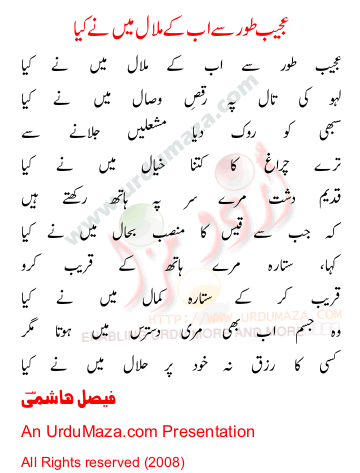 عجیب طور سے اب کے ملال میں نے کیا
عجیب طور سے اب کے ملال میں نے کیا
لہو کی تال پہ رقص وصال میں نے کیا
سبھی کو روک دیا مشعلیں جلانے سے
ترے چراغ کا کتنا خیال میں نے کیا
قدیم دشت مرے سر پہ ہاتھ رکھتے ہیں
کہ جب سے قیس کا منصب بحال میں نے کیا
کہا، ستارہ مرے ہاتھ کے قریب کرو
قریب کر کے ستارہ کمال میں نے کیا
وہ جسم اب بھی مری دسترس میں ہوتا مگر
کسی کا رزق نہ خود پر حلال میں نے کیا
فیصل ہاشمی
An UrduMaza.com Presentation
All Rights reserved (2008)
www.urdumaza.com
اُردو مزا
HTTP://WWW.URDUMAZA.COM
ENABLING URDU MORE AND MORE